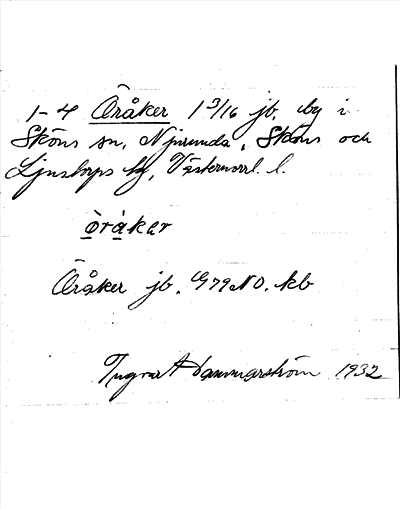 1-4 Öråker 1 3/16 jb. by i
Sköns sn, Njurunda, Sköns och
Ljustorps tg, Västernorrl. l.
òràker
Öråker jb. G79NO. kb
Ingvar Hammarström 1932